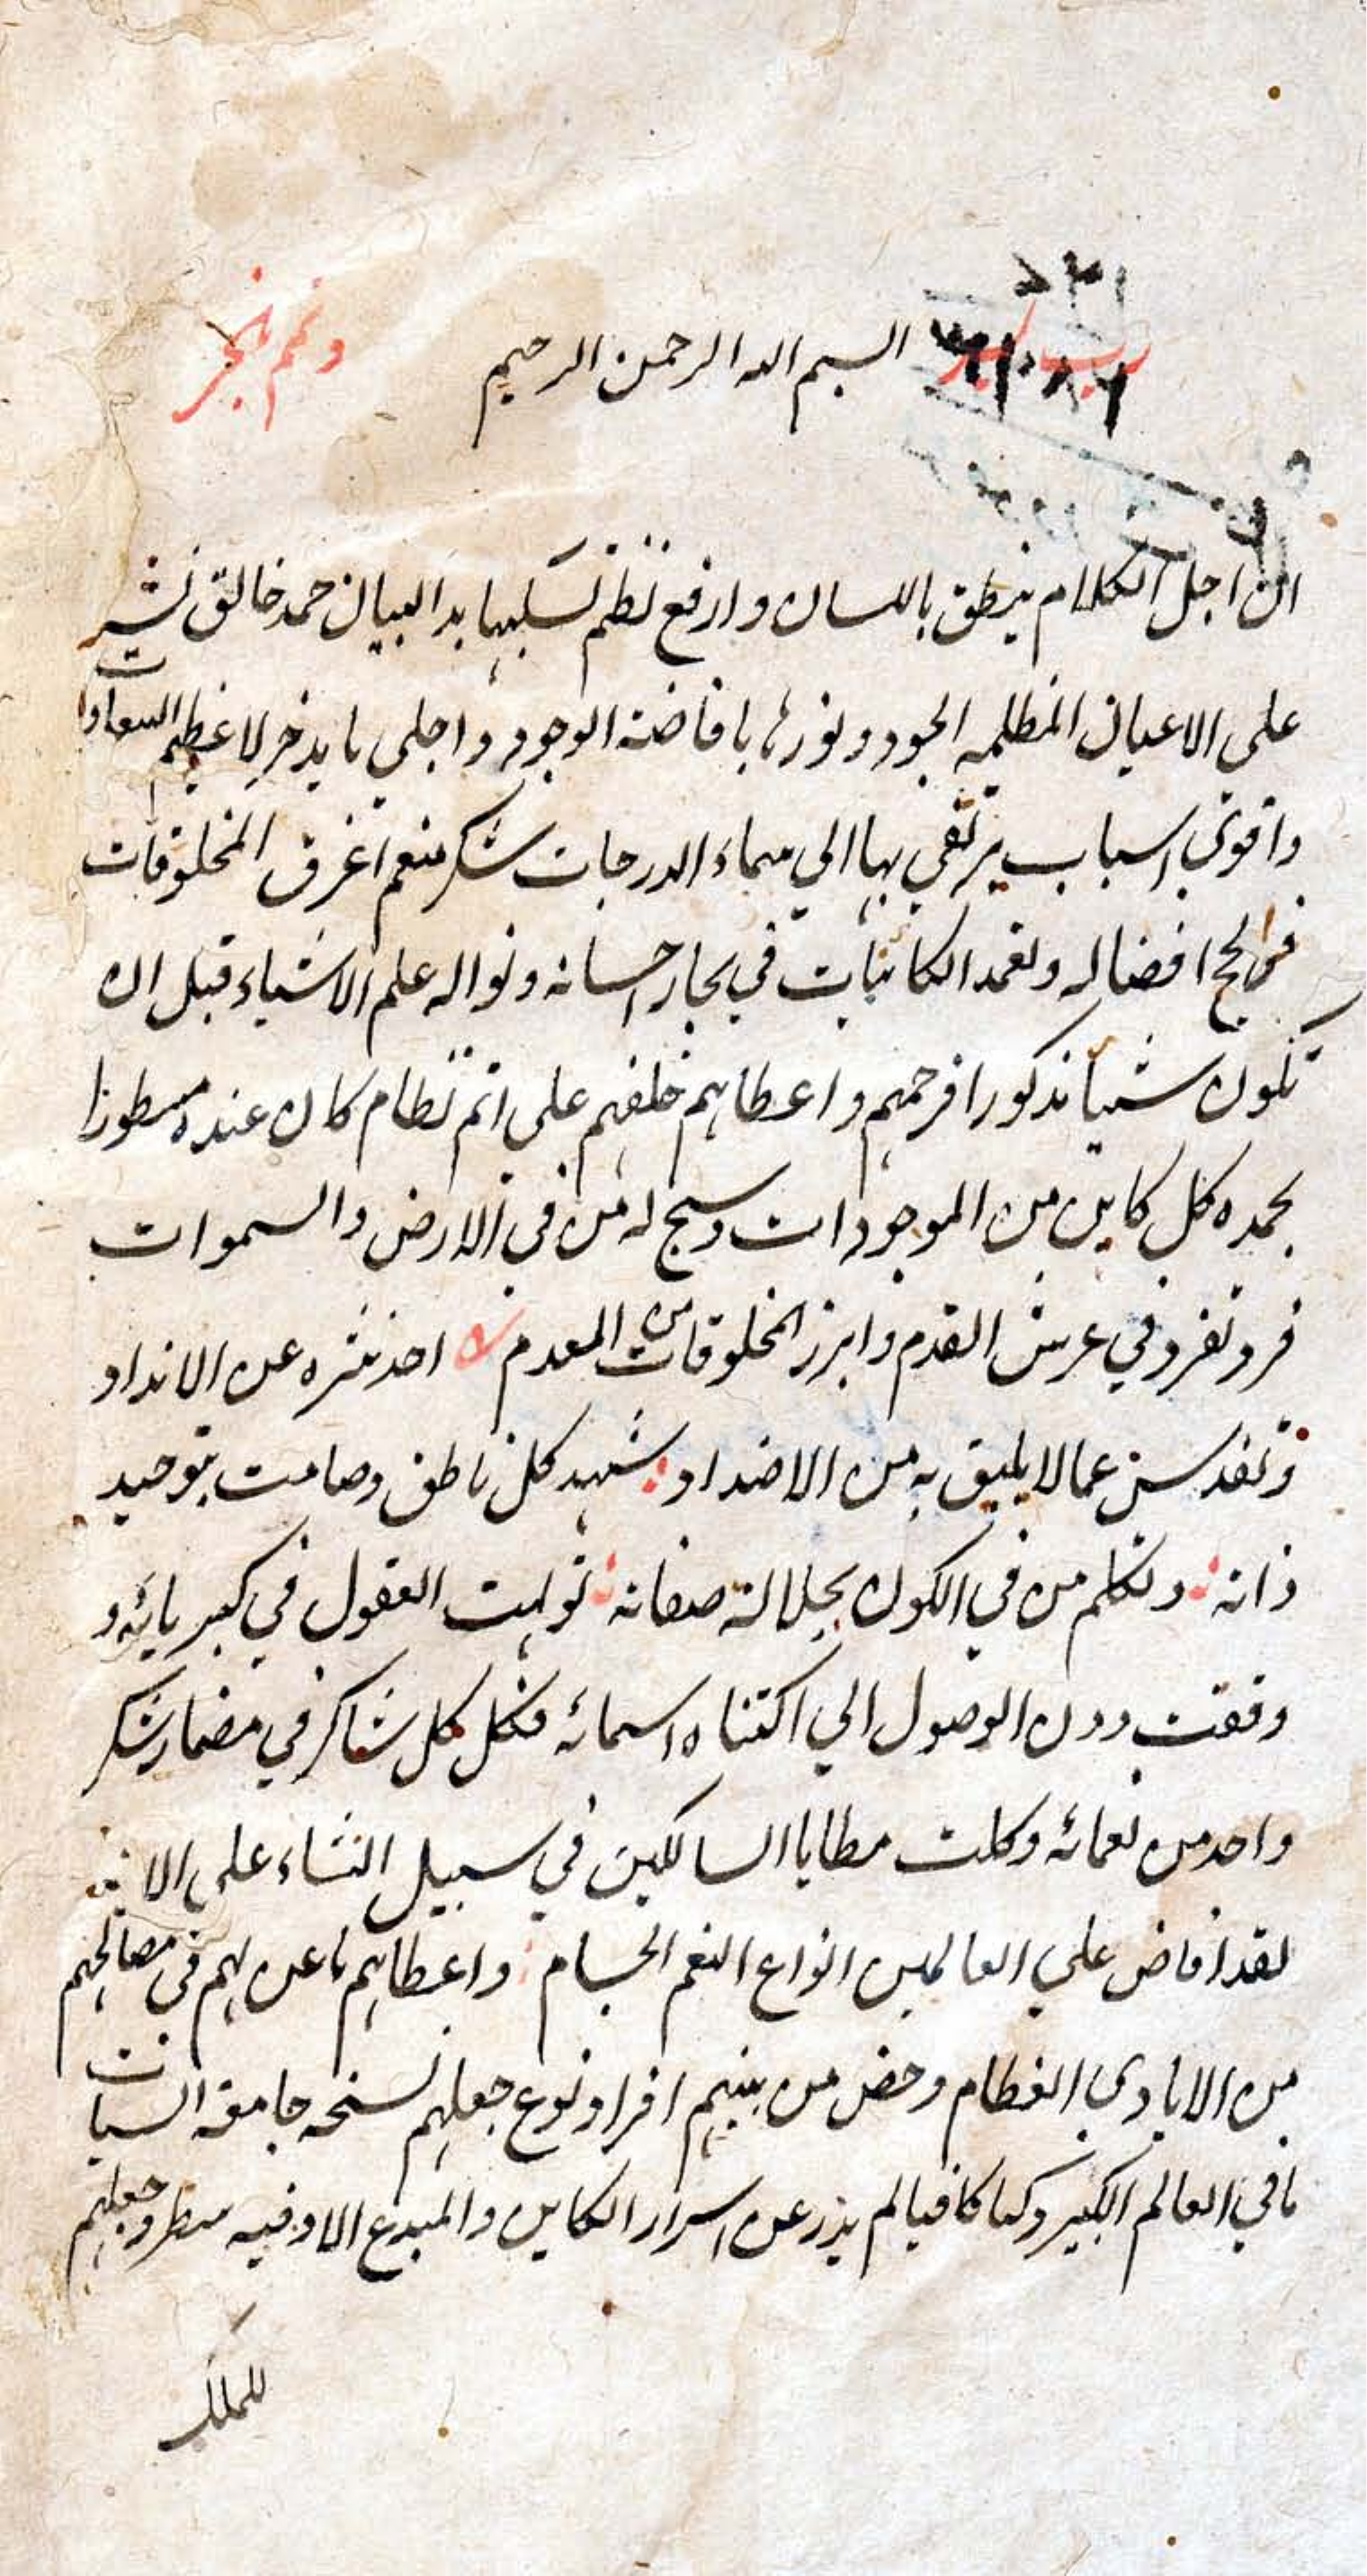 بسم الله الرحمن الرحيم
وتمم بالخير
ان اجل الكلام ينطق باللسان وارفع نظم تسلبها بد البيان حمد خالق نشر
على الاعيان المظلمه الجود ونورها بافاضة الوجود واجلى ما يدخر لاعظم السعادات
واقوى اسباب يرتقى بها الي سماء الدرجات شكر منعم اغرق المخلوقات
في لجج افضاله وتغمد الكائنات في بحار احسانه ونواله علم الاشياء قبل ان
تكون شيئا مذكورا فرحمهم واعطاهم خلقهم على اتم نظام كان عنده مسطورا
بحمده كل كاين من الموجودات وسبح له من في الارض والسموات
فرد تفرد في عرش القدم وابرز المخلوقات من العدم احد تنزه عن الانداد
وتقدس عما لا يليق به من الاضداد شهد كل ناطق وصامت بتوحيد
ذاته وتكلم من في الكون بجلالة صفاته تولهت العقول في كبريائه و
وقفت دون الوصول الي اكتناه اسمائه فكل كل شاكر في مضمار شكر
واحد من نعمائه وكلت مطايا السالكين في سبيل الثناء على الائه
لقد افاض علي العالمين انواع النعم الجسام واعطاهم ما عن لهم في مصالحهم
من الايادي العظام وخص من بينهم افراد نوع جعلهم نسخه جامعة
ما في العالم الكبير وكتابا كافيا لم يذر عن اسرار الكاين والمبدع الا وفيه سطر وجعلهم
للملك